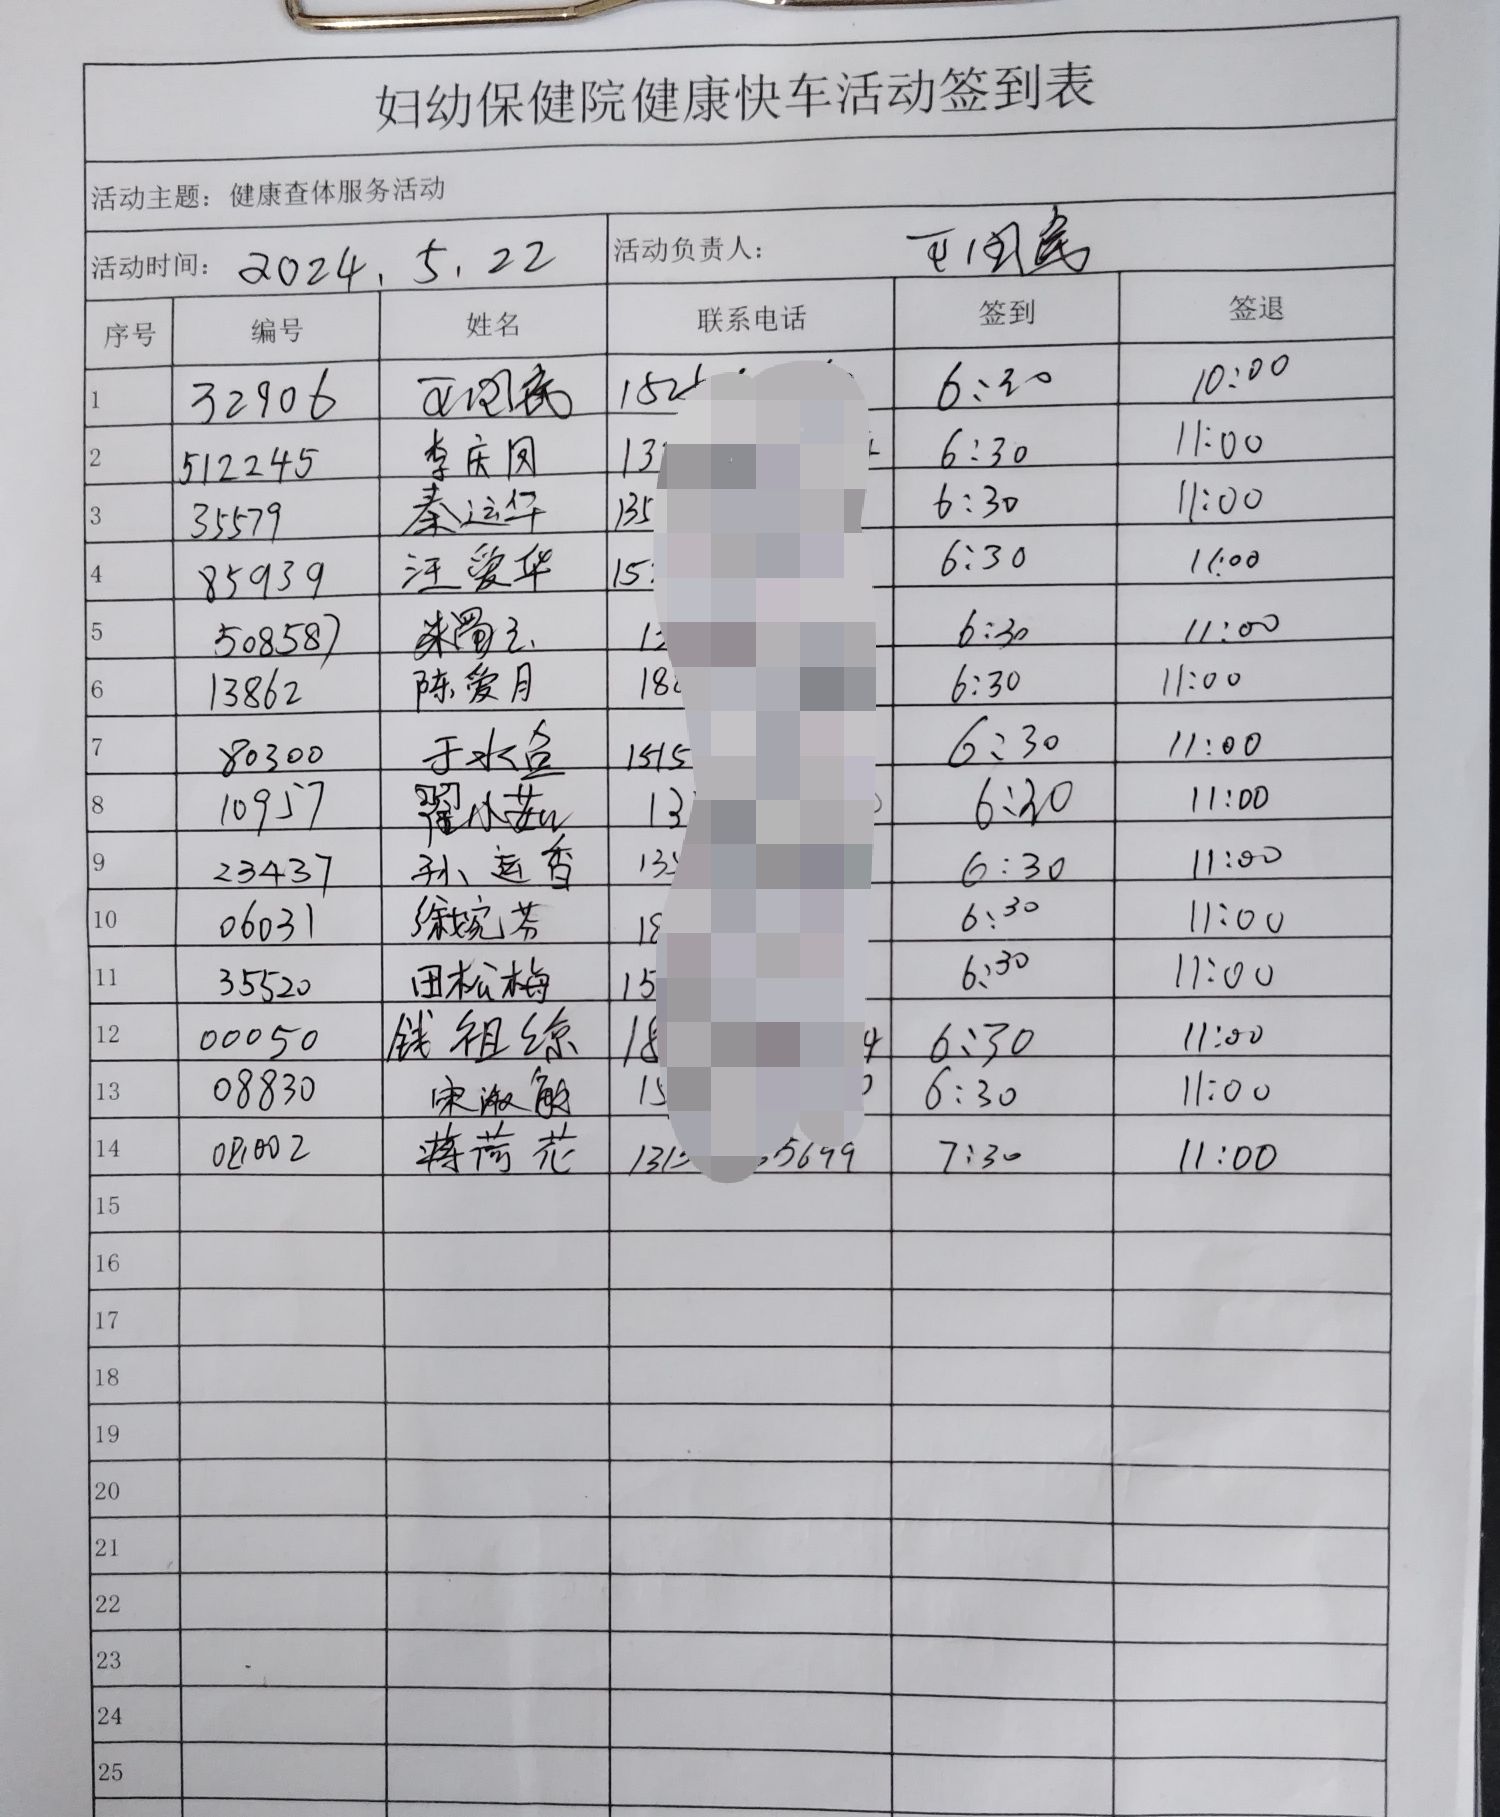 妇幼保健院健康快车活动签到表
活动主题：健康查体服务活动
活动时间：2024.5.22 活动负责人：
序号 编号 姓名 联系电话 签到 签退
1 32906 6:30 10:00
2 512245 李庆 6:30 11:00
3 35579 秦运华 135 6:30 11:00
4 85939 汪爱华 15 6:30 11:00
5 508587 朱蜀 6:30 11:00
6 13862 陈爱月 18 6:30 11:00
7 80300 于水 1515 6:30 11:00
8 10957 翟小茹 13 6:30 11:00
9 23437 孙莲香 13 6:30 11:00
10 06031 徐婉芬 18 6:30 11:00
11 35520 田松梅 15 6:30 11:00
12 00050 钱祖 18 6:30 11:00
13 08830 宋淑敏 15 6:30 11:00
14 蒋荷花 1313 5699 7:30 11:00
15
16
17
18
19
20
21
22
23
24
25